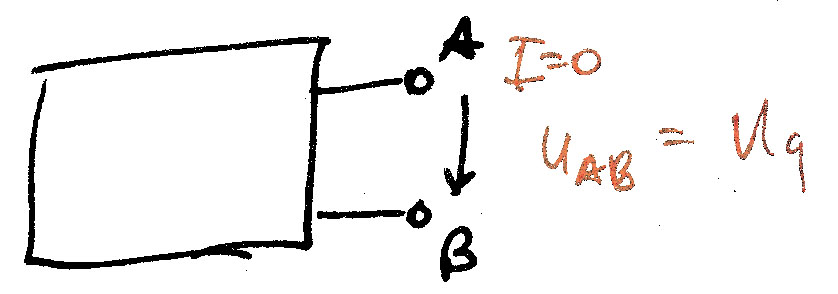 A
I=0
U_AB = U_q
B